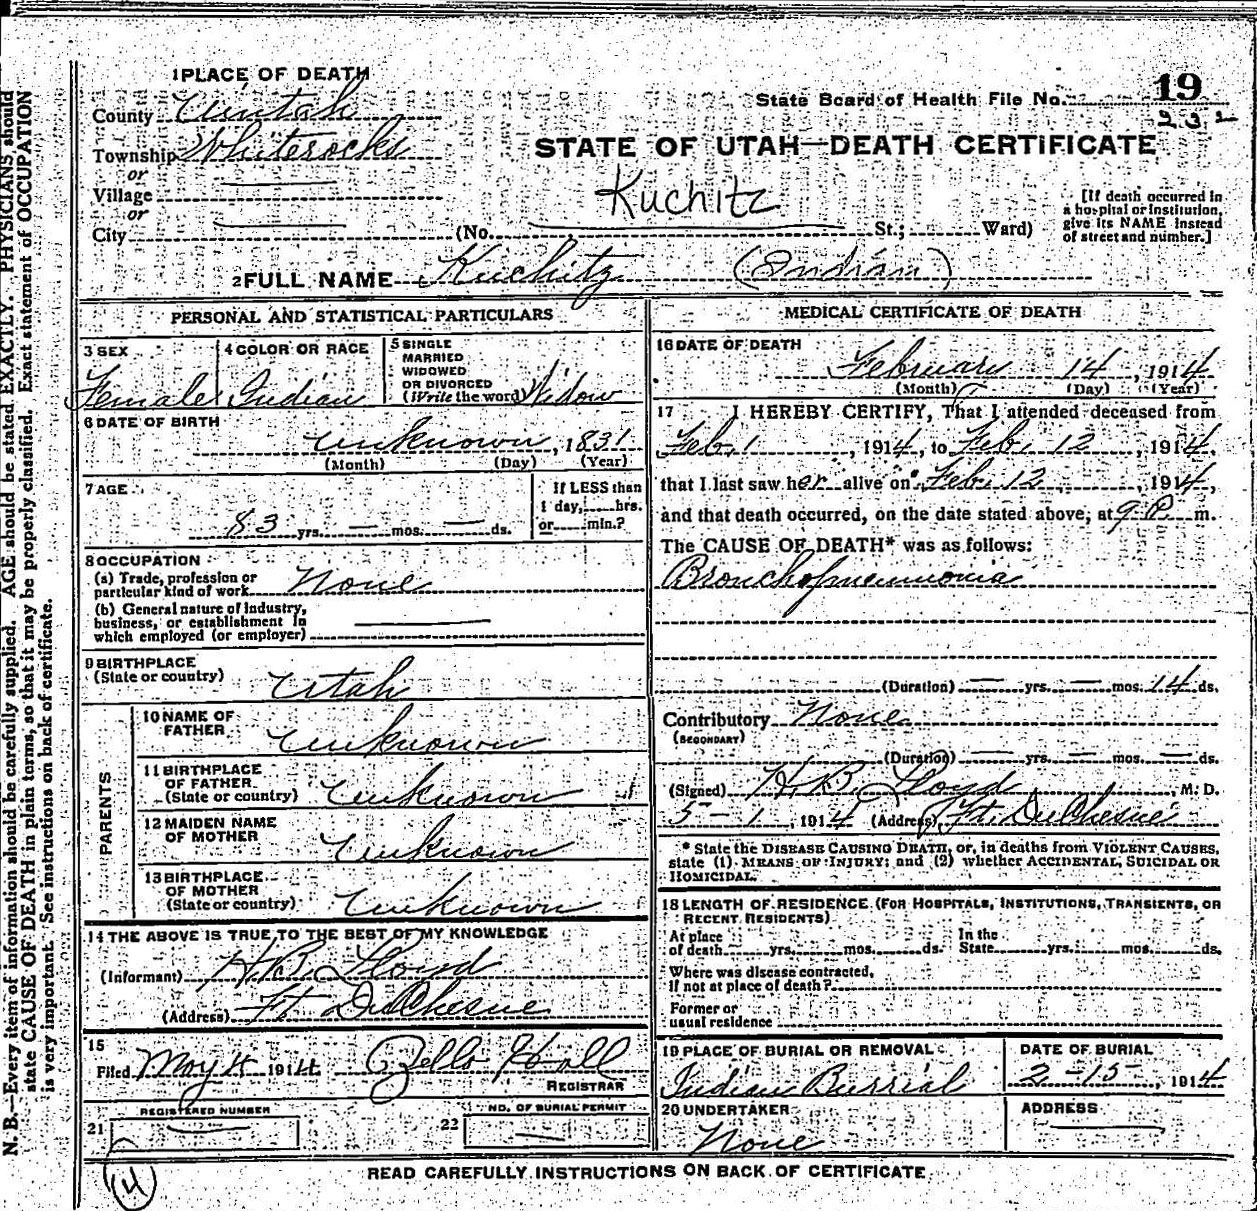 1 PLACE OF DEATH
County Uintah
Township Whiterocks
or
Village
or
City (No. St.; Ward)
State Board of Health File No. 19
232
STATE OF UTAH—DEATH CERTIFICATE
Kuchitz
[If death occurred in
a hospital or institution,
give its NAME instead
of street and number.]
2 FULL NAME Kuchitz (Indian)
PERSONAL AND STATISTICAL PARTICULARS
3 SEX
Female
4 COLOR OR RACE
Indian
5 SINGLE
MARRIED
WIDOWED
OR DIVORCED
(Write the word) Widow
6 DATE OF BIRTH
Unknown, 1831
(Month) (Day) (Year)
7 AGE
83 yrs. — mos. — ds.
If LESS than
1 day, hrs.
or min.?
8 OCCUPATION
(a) Trade, profession or
particular kind of work None
(b) General nature of industry,
business, or establishment in
which employed (or employer)
9 BIRTHPLACE
(State or country) Utah
PARENTS
10 NAME OF
FATHER Unknown
11 BIRTHPLACE
OF FATHER
(State or country) Unknown
12 MAIDEN NAME
OF MOTHER Unknown
13 BIRTHPLACE
OF MOTHER
(State or country) Unknown
14 THE ABOVE IS TRUE TO THE BEST OF MY KNOWLEDGE
(Informant) H.B. Lloyd
(Address) Ft. DuChesne
15
Filed May 4 1914 Ozello Hall
REGISTRAR
REGISTERED NUMBER
21
NO. OF BURIAL PERMIT
22
MEDICAL CERTIFICATE OF DEATH
16 DATE OF DEATH
February 14, 1914
(Month) (Day) (Year)
17 I HEREBY CERTIFY, That I attended deceased from
Feb. 1, 1914, to Feb. 12, 1914,
that I last saw her alive on Feb. 12, 1914,
and that death occurred, on the date stated above, at 9 P. m.
The CAUSE OF DEATH* was as follows:
Bronchopneumonia
(Duration) — yrs. — mos. 14 ds.
Contributory None
(SECONDARY)
(Duration) — yrs. — mos. — ds.
(Signed) H.B. Lloyd, M. D.
5-1, 1914 (Address) Ft. DuChesne
* State the DISEASE CAUSING DEATH, or, in deaths from VIOLENT CAUSES,
state (1) MEANS OF INJURY; and (2) whether ACCIDENTAL, SUICIDAL OR
HOMICIDAL.
18 LENGTH OF RESIDENCE (FOR HOSPITALS, INSTITUTIONS, TRANSIENTS, OR
RECENT RESIDENTS)
At place
of death yrs. mos. ds. In the
State yrs. mos. ds.
Where was disease contracted,
if not at place of death?
Former or
usual residence
19 PLACE OF BURIAL OR REMOVAL
Indian Burrial
DATE OF BURIAL
2-15, 1914
20 UNDERTAKER
None
ADDRESS
READ CAREFULLY INSTRUCTIONS ON BACK OF CERTIFICATE
14
N. B.—Every item of information should be carefully supplied. AGE should be stated EXACTLY. PHYSICIANS should
state CAUSE OF DEATH in plain terms, so that it may be properly classified. Exact statement of OCCUPATION
is very important. See instructions on back of certificate.